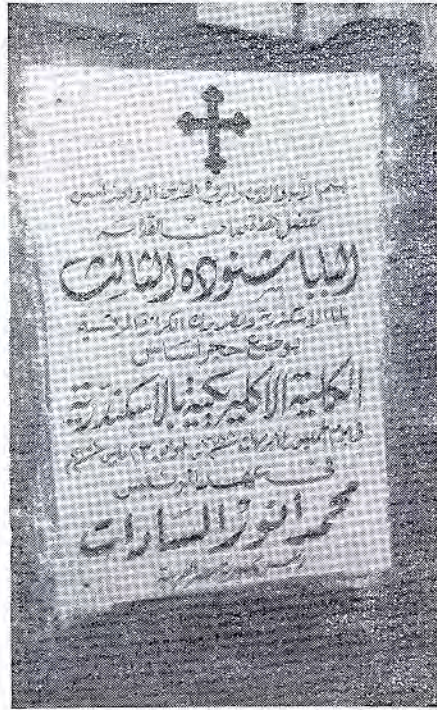 بسم الآب والابن والروح القدس الاله الواحد آمين
تفضل صاحب القداسة
البابا شنوده الثالث
بابا الاسكندرية وبطريرك الكرازة المرقسية
بوضع حجر أساس
الكلية الاكليريكية بالاسكندرية
فى يوم
فى عهد الرئيس
محمد أنور السادات
رئيس جمهورية مصر العربية